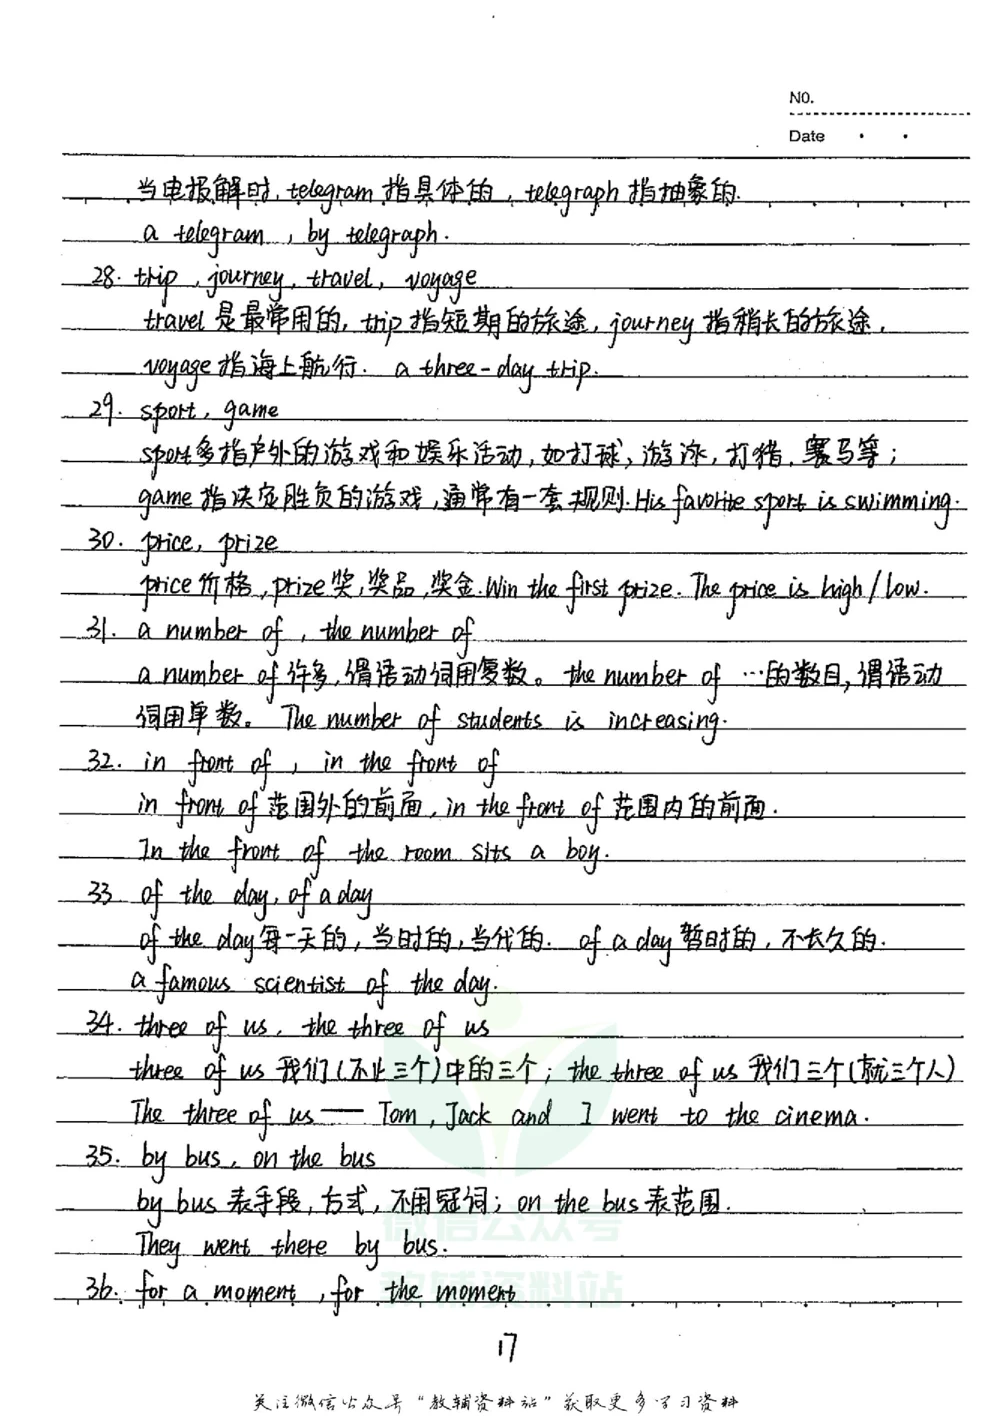 NO.
Date
当电报解时, telegram 指具体的, telegraph 指抽象的.
a telegram , by telegraph.
28. trip , journey, travel, voyage
travel 是最常用的, trip 指短期的旅途, journey 指稍长的旅途,
voyage 指海上航行. a three-day trip.
29. sport, game
sport多指户外的游戏和娱乐活动, 如打球, 游泳, 打猎, 赛马等;
game 指决定胜负的游戏, 通常有一套规则. His favorite sport is swimming.
30. price, prize
price 价格, prize 奖, 奖品, 奖金. Win the first prize. The price is high / low.
31. a number of , the number of
a number of 许多, 谓语动词用复数。 the number of …的数目, 谓语动
词用单数。 The number of students is increasing.
32. in front of , in the front of
in front of 范围外的前面, in the front of 范围内的前面.
In the front of the room sits a boy.
33 of the day, of a day
of the day 每一天的, 当时的, 当代的. of a day 暂时的, 不长久的.
a famous scientist of the day.
34. three of us, the three of us
three of us 我们(不止三个)中的三个; the three of us 我们三个(就三个人)
The three of us — Tom, Jack and I went to the cinema.
35. by bus, on the bus
by bus 表手段, 方式, 不用冠词; on the bus 表范围.
They went there by bus.
36. for a moment , for the moment
微信公众号
教辅资料站
17
关注微信公众号“教辅资料站”获取更多学习资料